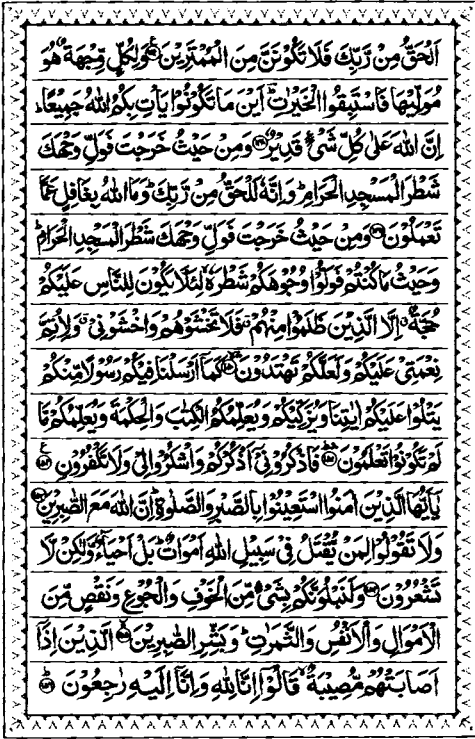 اَلْحَقُّ مِنْ رَّبِّكَ فَلَا تَكُوْنَنَّ مِنَ الْمُمْتَرِيْنَ ۝۱۴۷ وَلِكُلٍّ وِّجْهَةٌ هُوَ
مُوَلِّيْهَا فَاسْتَبِقُوا الْخَيْرٰتِ ؕ اَيْنَ مَا تَكُوْنُوْا يَاْتِ بِكُمُ اللّٰهُ جَمِيْعًا ؕ
اِنَّ اللّٰهَ عَلٰى كُلِّ شَىْءٍ قَدِيْرٌ ۝۱۴۸ وَمِنْ حَيْثُ خَرَجْتَ فَوَلِّ وَجْهَكَ
شَطْرَ الْمَسْجِدِ الْحَرَامِ ؕ وَاِنَّهٗ لَلْحَقُّ مِنْ رَّبِّكَ ؕ وَمَا اللّٰهُ بِغَافِلٍ عَمَّا
تَعْمَلُوْنَ ۝۱۴۹ وَمِنْ حَيْثُ خَرَجْتَ فَوَلِّ وَجْهَكَ شَطْرَ الْمَسْجِدِ الْحَرَامِ ؕ
وَحَيْثُ مَا كُنْتُمْ فَوَلُّوْا وُجُوْهَكُمْ شَطْرَهٗ ۙ لِئَلَّا يَكُوْنَ لِلنَّاسِ عَلَيْكُمْ
حُجَّةٌ ۙ اِلَّا الَّذِيْنَ ظَلَمُوْا مِنْهُمْ ۗ فَلَا تَخْشَوْهُمْ وَاخْشَوْنِىْ ۗ وَلِاُتِمَّ
نِعْمَتِىْ عَلَيْكُمْ وَلَعَلَّكُمْ تَهْتَدُوْنَ ۝۱۵۰ كَمَاۤ اَرْسَلْنَا فِيْكُمْ رَسُوْلًا مِّنْكُمْ
يَتْلُوْا عَلَيْكُمْ اٰيٰتِنَا وَيُزَكِّيْكُمْ وَيُعَلِّمُكُمُ الْكِتٰبَ وَالْحِكْمَةَ وَيُعَلِّمُكُمْ مَّا
لَمْ تَكُوْنُوْا تَعْلَمُوْنَ ۝۱۵۱ فَاذْكُرُوْنِىْۤ اَذْكُرْكُمْ وَاشْكُرُوْا لِىْ وَلَا تَكْفُرُوْنِ ۝۱۵۲
يٰۤاَيُّهَا الَّذِيْنَ اٰمَنُوا اسْتَعِيْنُوْا بِالصَّبْرِ وَالصَّلٰوةِ ؕ اِنَّ اللّٰهَ مَعَ الصّٰبِرِيْنَ ۝۱۵۳
وَلَا تَقُوْلُوْا لِمَنْ يُّقْتَلُ فِىْ سَبِيْلِ اللّٰهِ اَمْوَاتٌ ؕ بَلْ اَحْيَآءٌ وَّلٰكِنْ لَّا
تَشْعُرُوْنَ ۝۱۵۴ وَلَنَبْلُوَنَّكُمْ بِشَىْءٍ مِّنَ الْخَوْفِ وَالْجُوْعِ وَنَقْصٍ مِّنَ
الْاَمْوَالِ وَالْاَنْفُسِ وَالثَّمَرٰتِ ؕ وَبَشِّرِ الصّٰبِرِيْنَ ۝۱۵۵ الَّذِيْنَ اِذَاۤ
اَصَابَتْهُمْ مُّصِيْبَةٌ ۙ قَالُوْۤا اِنَّا لِلّٰهِ وَاِنَّاۤ اِلَيْهِ رٰجِعُوْنَ ۝۱۵۶